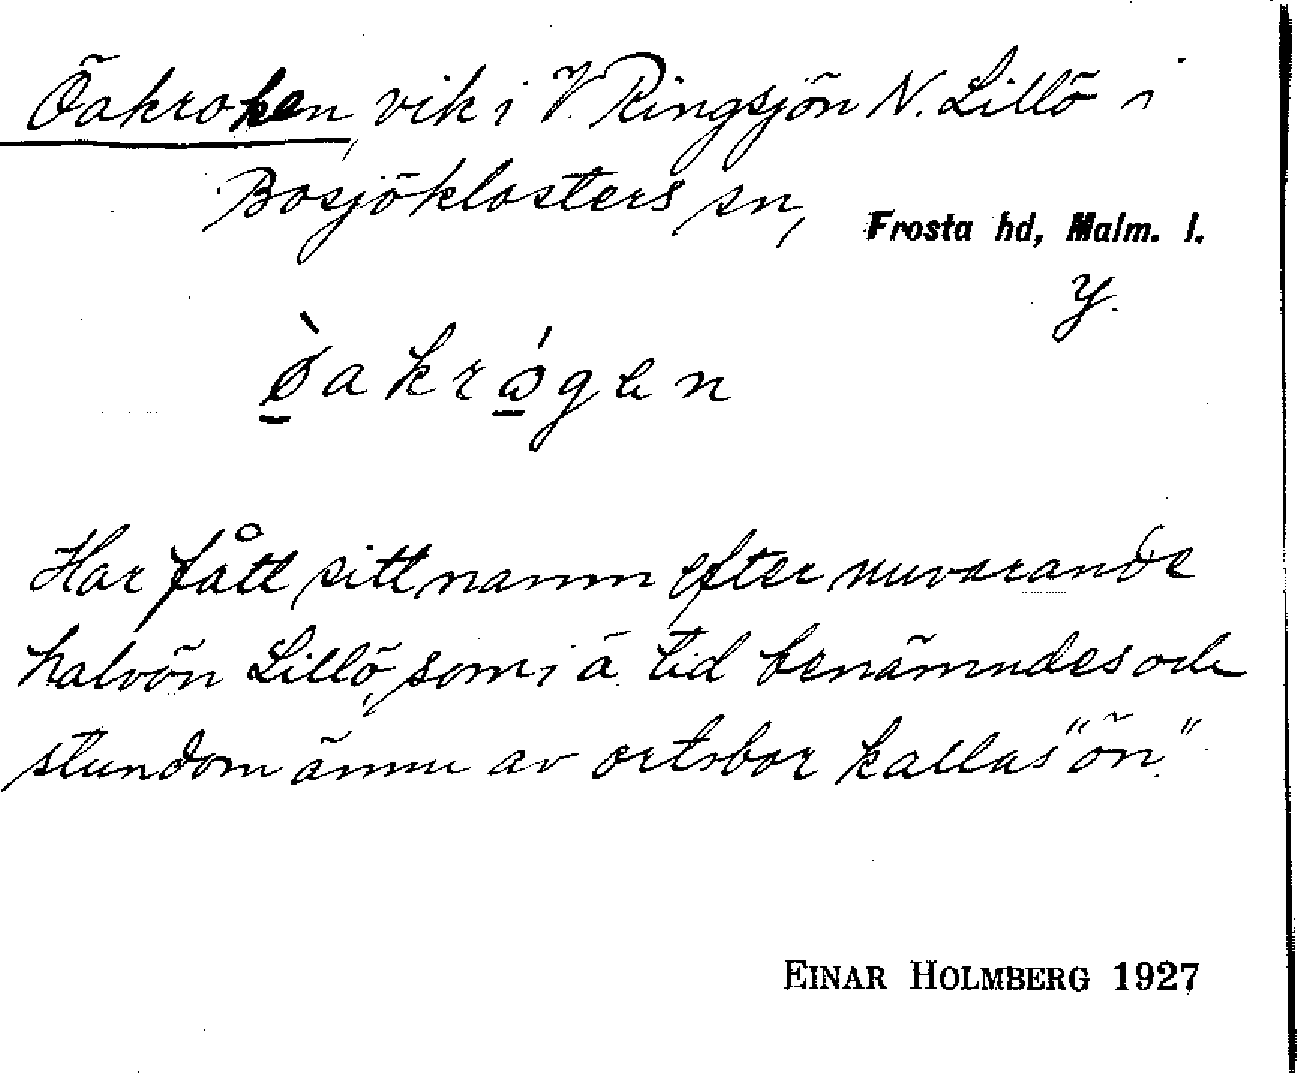 Öakroken, vik i V. Ringsjön N. Lillö i
Bosjöklosters sn, Frosta hd, Malm. l.
y.
ø̀akrǿgen
Har fått sitt namn efter nuvarande
halvön Lillö, som i ä. tid benämndes och
stundom ännu av ortsbor kallas "ön."
EINAR HOLMBERG 1927